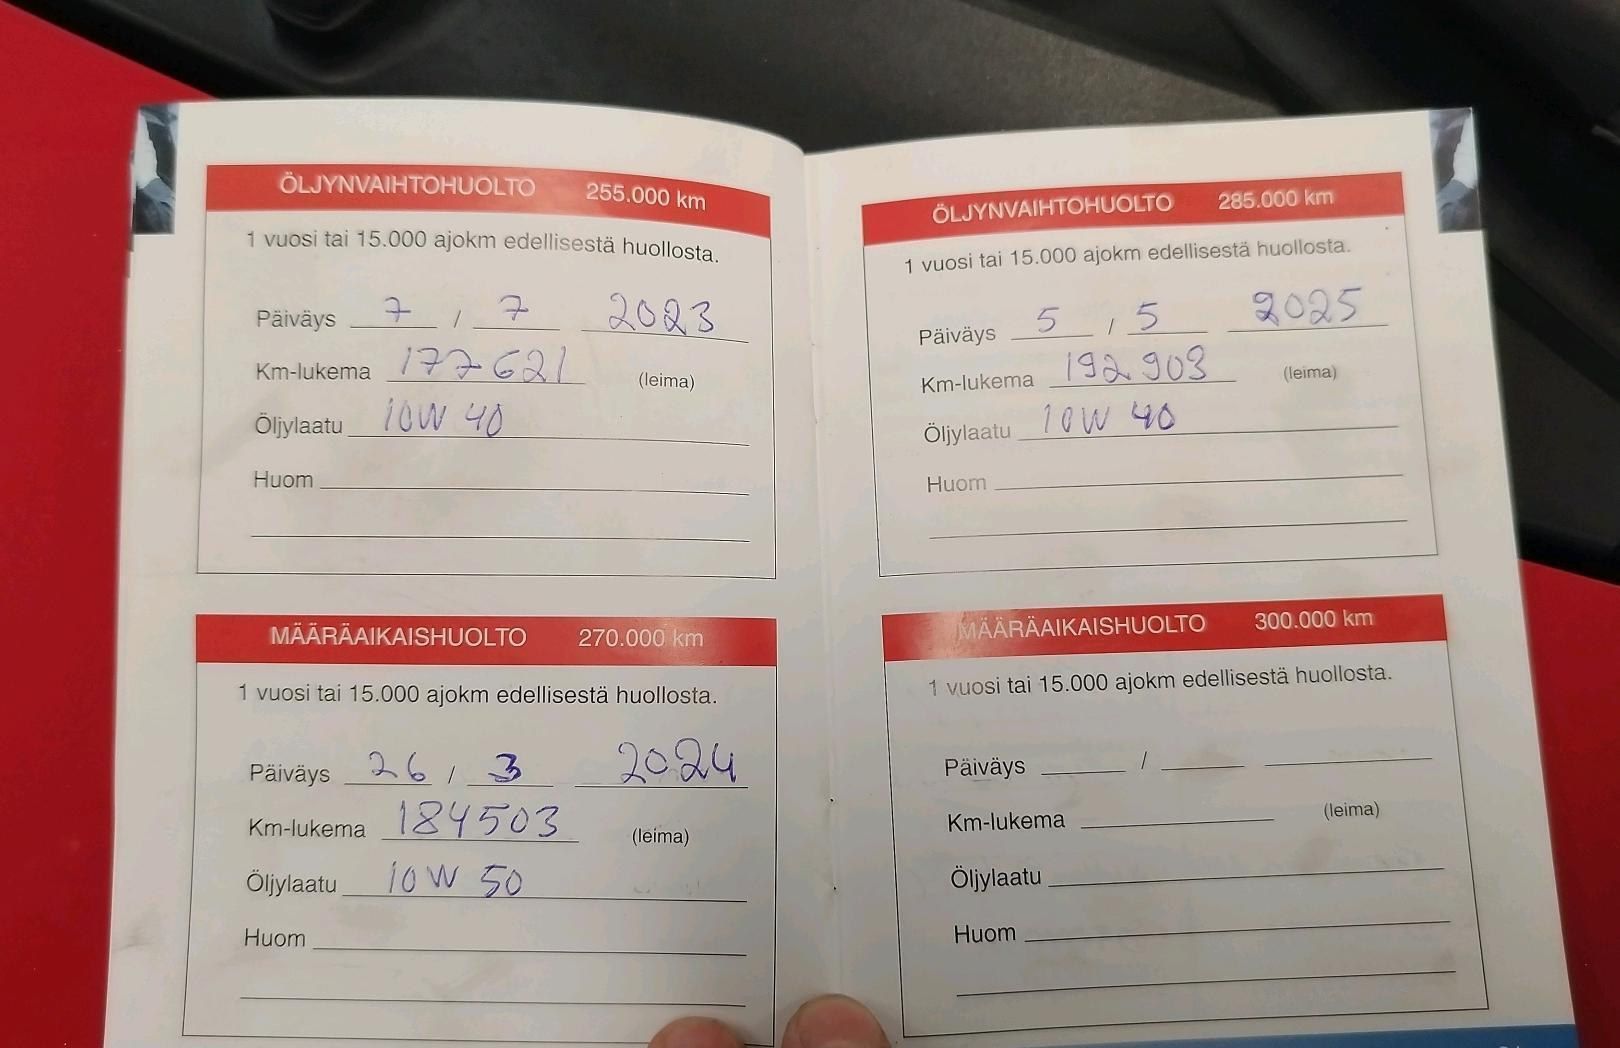 ÖLJYNVAIHTOHUOLTO 255.000 km
1 vuosi tai 15.000 ajokm edellisestä huollosta.
Päiväys 7 / 7 2023
Km-lukema 177621 (leima)
Öljylaatu 10W 40
Huom
MÄÄRÄAIKAISHUOLTO 270.000 km
1 vuosi tai 15.000 ajokm edellisestä huollosta.
Päiväys 26 / 3 2024
Km-lukema 184503 (leima)
Öljylaatu 10W 50
Huom
ÖLJYNVAIHTOHUOLTO 285.000 km
1 vuosi tai 15.000 ajokm edellisestä huollosta.
Päiväys 5 / 5 2025
Km-lukema 192 903 (leima)
Öljylaatu 10W 40
Huom
MÄÄRÄAIKAISHUOLTO 300.000 km
1 vuosi tai 15.000 ajokm edellisestä huollosta.
Päiväys /
Km-lukema (leima)
Öljylaatu
Huom